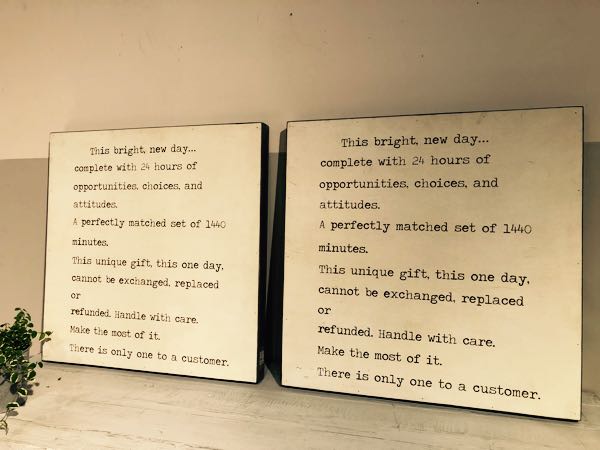 This bright, new day...
complete with 24 hours of
opportunities, choices, and
attitudes.
A perfectly matched set of 1440
minutes.
This unique gift, this one day,
cannot be exchanged, replaced
or
refunded. Handle with care.
Make the most of it.
There is only one to a customer.
This bright, new day...
complete with 24 hours of
opportunities, choices, and
attitudes.
A perfectly matched set of 1440
minutes.
This unique gift, this one day,
cannot be exchanged, replaced
or
refunded. Handle with care.
Make the most of it.
There is only one to a customer.